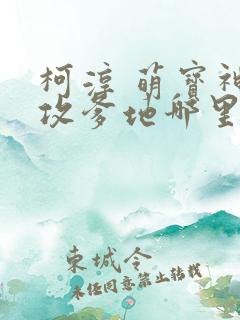 柯淳 萌宝神
攻爹地哪里
東城令
未经同意禁止转载